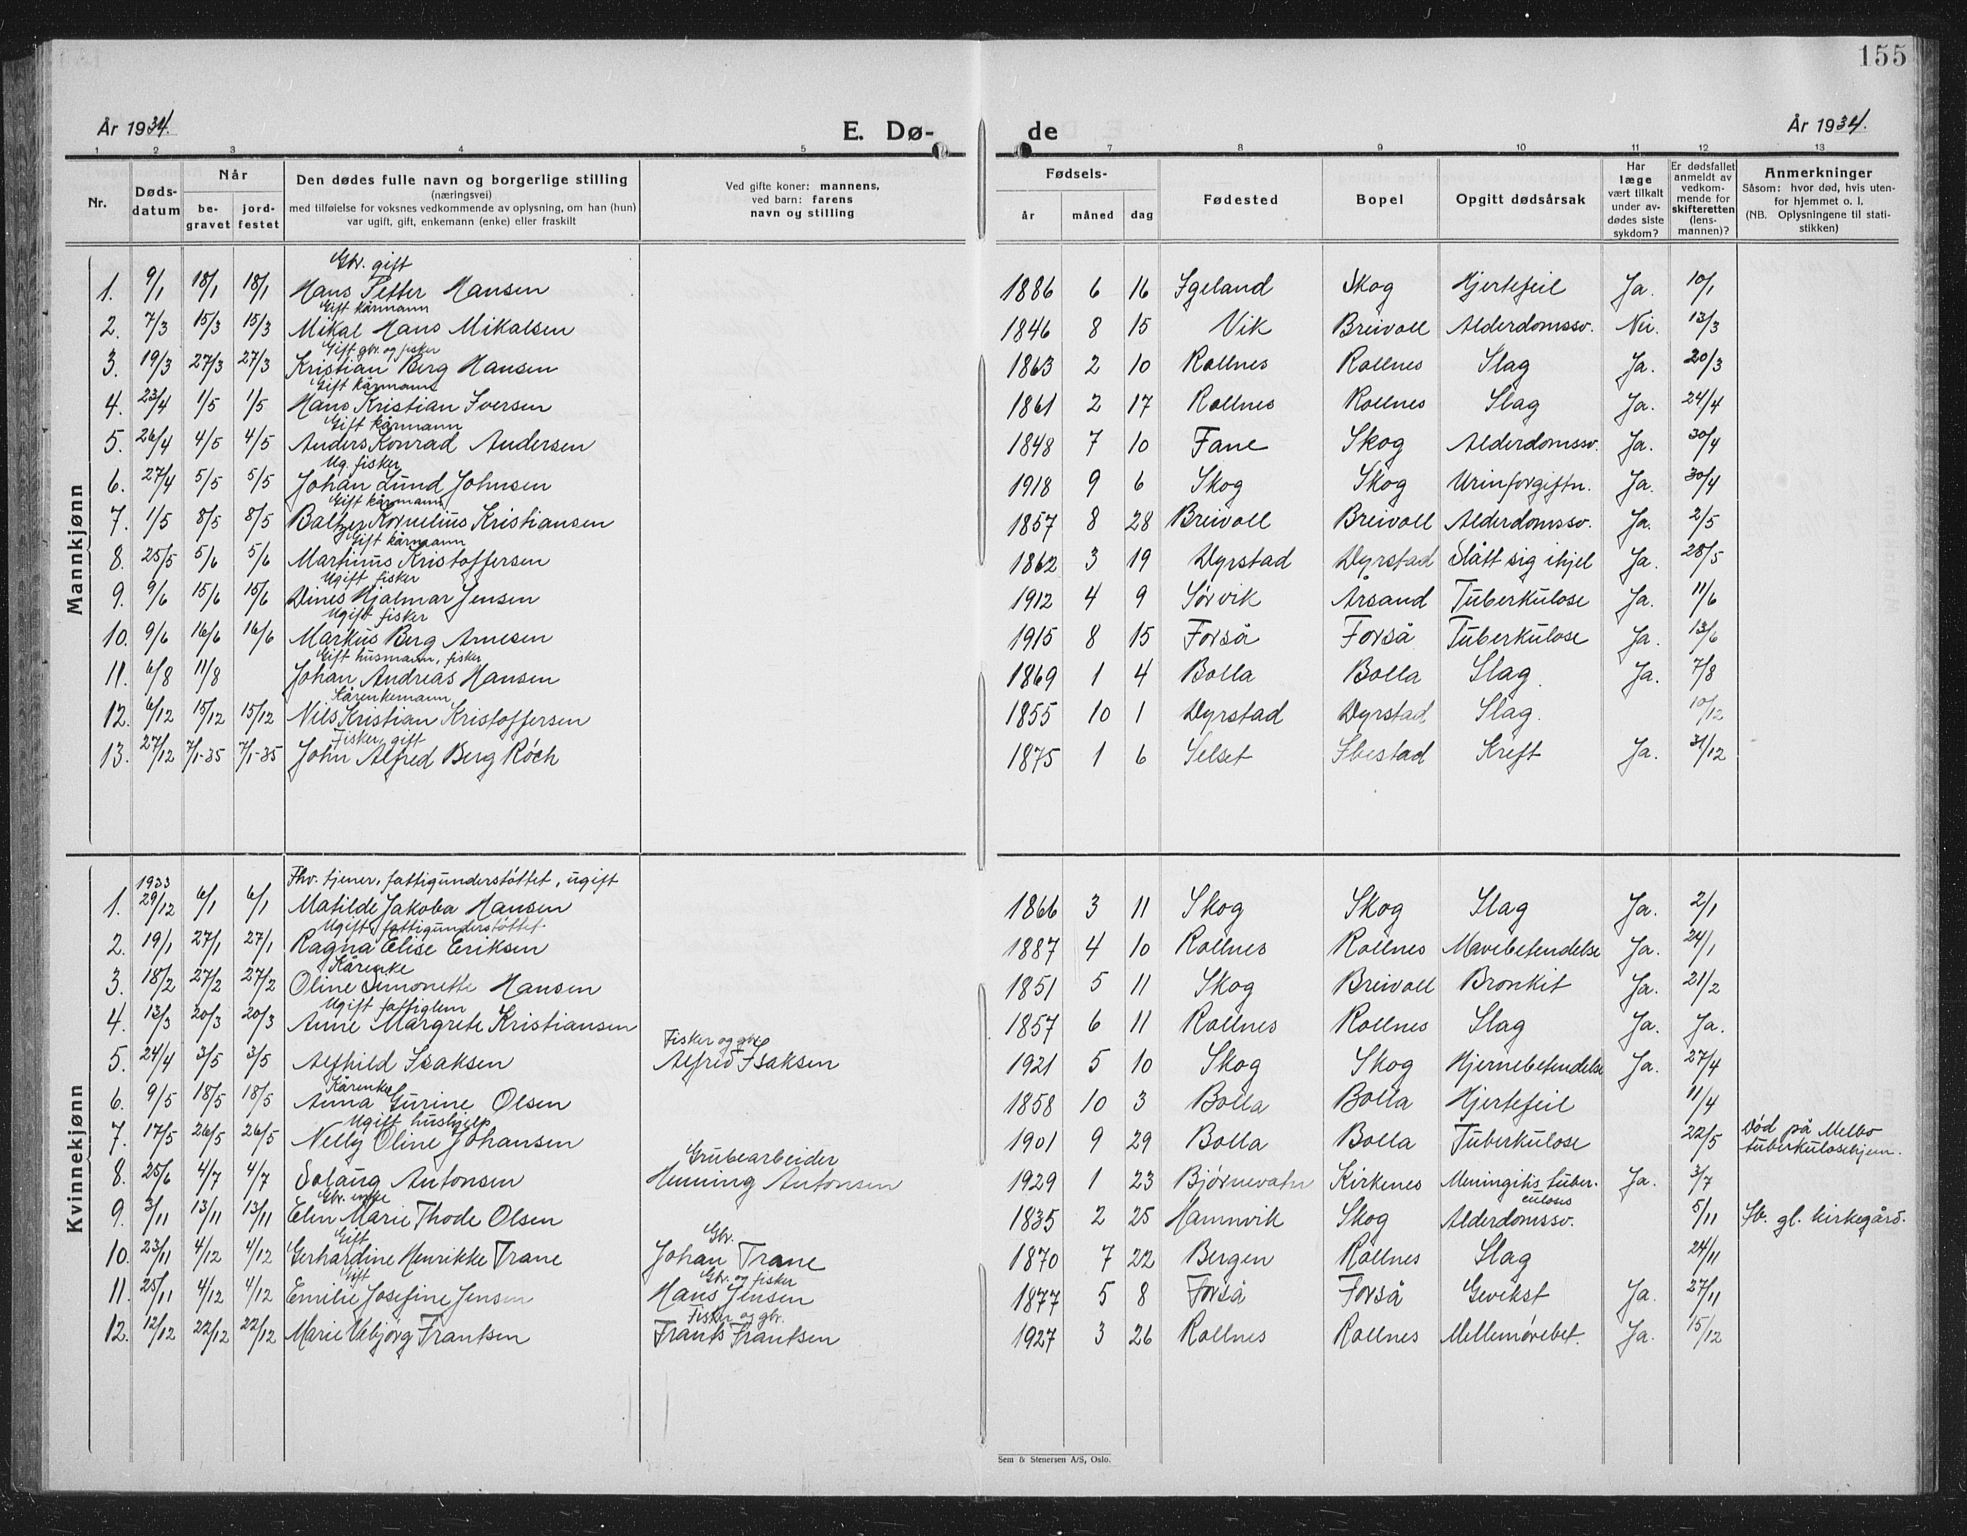 155
År 1934.
E. Dø-
de
År 1934.
1 2 3 4 5 7 8 9 10 11 12 13
Nr.
Døds-
datum
Når
be-
gravet
jord-
festet
Den dødes fulle navn og borgerlige stilling
(næringsvei)
med tilføielse for voksnes vedkommende av oplysning, om han (hun)
var ugift, gift, enkemann (enke) eller fraskilt
Ved gifte koner: mannens,
ved barn: farens
navn og stilling
Fødsels-
år
måned
dag
Fødested
Bopel
Opgitt dødsårsak
Har
læge
vært tilkalt
under av-
dødes siste
sykdom?
Er dødsfallet
anmeldt av
vedkom-
mende for
skifteretten
(lens-
mannen)?
Anmerkninger
Såsom: hvor død, hvis uten-
for hjemmet o. l.
(NB. Oplysningene til stati-
stikken)
Mannkjønn
Gbr. gift
1. 9/1 18/1 18/1 Hans Petter Hansen 1886 6 16 Igeland Skog Hjertefeil Ja. 10/1
Gift kårmann
2. 7/3 15/3 15/3 Mikal Hans Mikalsen 1846 8 15 Vik Breivoll Alderdomssv. Nei. 13/3
Gift gbr. og fisker
3. 19/3 27/3 27/3 Kristian Berg Hansen 1863 2 10 Rollnes Rollnes Slag Ja. 20/3
Gift kårmann
4. 23/4 1/5 1/5 Hans Kristian Iversen 1861 2 17 Rollnes Rollnes Slag Ja. 24/4
Gift kårmann
5. 26/4 4/5 4/5 Anders Konrad Andersen 1848 7 10 Fane Skog Alderdomssv. Ja. 30/4
Ug. fisker
6. 27/4 5/5 5/5 Johan Lund Johnsen 1918 9 6 Skog Skog Urinforgiftn. Ja. 30/4
Gift kårmann
7. 1/5 8/5 8/5 Baltzer Kornelius Kristiansen 1857 8 28 Breivoll Breivoll Alderdomssv. Ja. 2/5
Gift kårmann
8. 25/5 5/6 5/6 Martinus Kristoffersen 1862 3 19 Dyrstad Dyrstad Slått sig ihjel Ja. 28/5
Ugift fisker
9. 9/6 15/6 15/6 Dines Hjalmar Jensen 1912 4 9 Sørvik Årsand Tuberkulose Ja. 11/6
Ugift fisker
10. 9/6 16/6 16/6 Markus Berg Arnesen 1915 8 15 Forså Forså Tuberkulose Ja. 13/6
Gift husmann, fisker
11. 6/8 11/8 Johan Andreas Hansen 1869 1 4 Bolla Bolla Slag. Ja. 7/8
Kårenkemann
12. 6/12 15/12 15/12 Nils Kristian Kristoffersen 1855 10 1 Dyrstad Dyrstad Slag. 10/12
Fisker, gift
13. 27/12 7/1-35 7/1-35 John Alfred Berg Røch 1875 1 6 Selset Ibestad Kreft Ja. 31/12
Kvinnekjønn
1933 Fhv. tjener, fattigunderstøttet, ugift
1. 29/12 6/1 6/1 Matilde Jakoba Hansen 1866 3 11 Skog Skog Slag Ja. 2/1
Ugift, fattigunderstøttet.
2. 19/1 27/1 27/1 Ragna Elise Eriksen 1887 4 10 Rollnes Rollnes Mavebetendelse Ja. 24/1
Kårenke
3. 18/2 27/2 27/2 Oline Simonette Hansen 1851 5 11 Skog Breivoll Bronkit Ja. 21/2
Ugift fattiglem
4. 13/3 20/3 20/3 Anne Margrete Kristiansen 1857 6 11 Rollnes Rollnes Slag Ja. Ja.
Fisker og gbr.
5. 24/4 3/5 3/5 Alfhild Isaksen Alfred Isaksen 1921 5 10 Skog Skog Hjernebetendelse Ja. 27/4
Kårenke
6. 9/5 18/5 18/5 Anna Gurine Olsen 1858 10 3 Bolla Bolla Hjertefeil 11/4
Ugift hushjelp
7. 17/5 26/5 26/5 Nelly Oline Johansen 1901 9 29 Bolla Bolla Tuberkulose 22/5 Død på Melbo
tuberkulosehjem.
Grubearbeider
8. 25/6 4/7 4/7 Solaug Antonsen Henning Antonsen 1929 1 23 Bjørnevatn Kirkenes Meningitis tuber-
culosis Ja. 3/7
Gbr. enke
9. 3/11 13/11 13/11 Elen Marie Thode Olsen 1835 2 25 Hamnvik Skog Alderdomssv. 5/11 Ib. gl. kirkegård.
Gift Gbr.
10. 23/11 4/12 4/12 Gerhardine Henrikke Trane Johan Trane 1870 7 22 Bergen Rollnes Slag 24/11
Gift Gbr. og fisker
11. 25/11 4/12 4/12 Emilie Josefine Jensen Hans Jensen 1877 5 8 Forså Forså Gevekst Ja. 27/11
Fisker og gbr.
12. 12/12 22/12 22/12 Marie Vebjørg Frantsen Frants Frantsen 1927 3 26 Rollnes Rollnes Mellemørebet. Ja. 15/12
Sem & Stenersen A/S, Oslo.